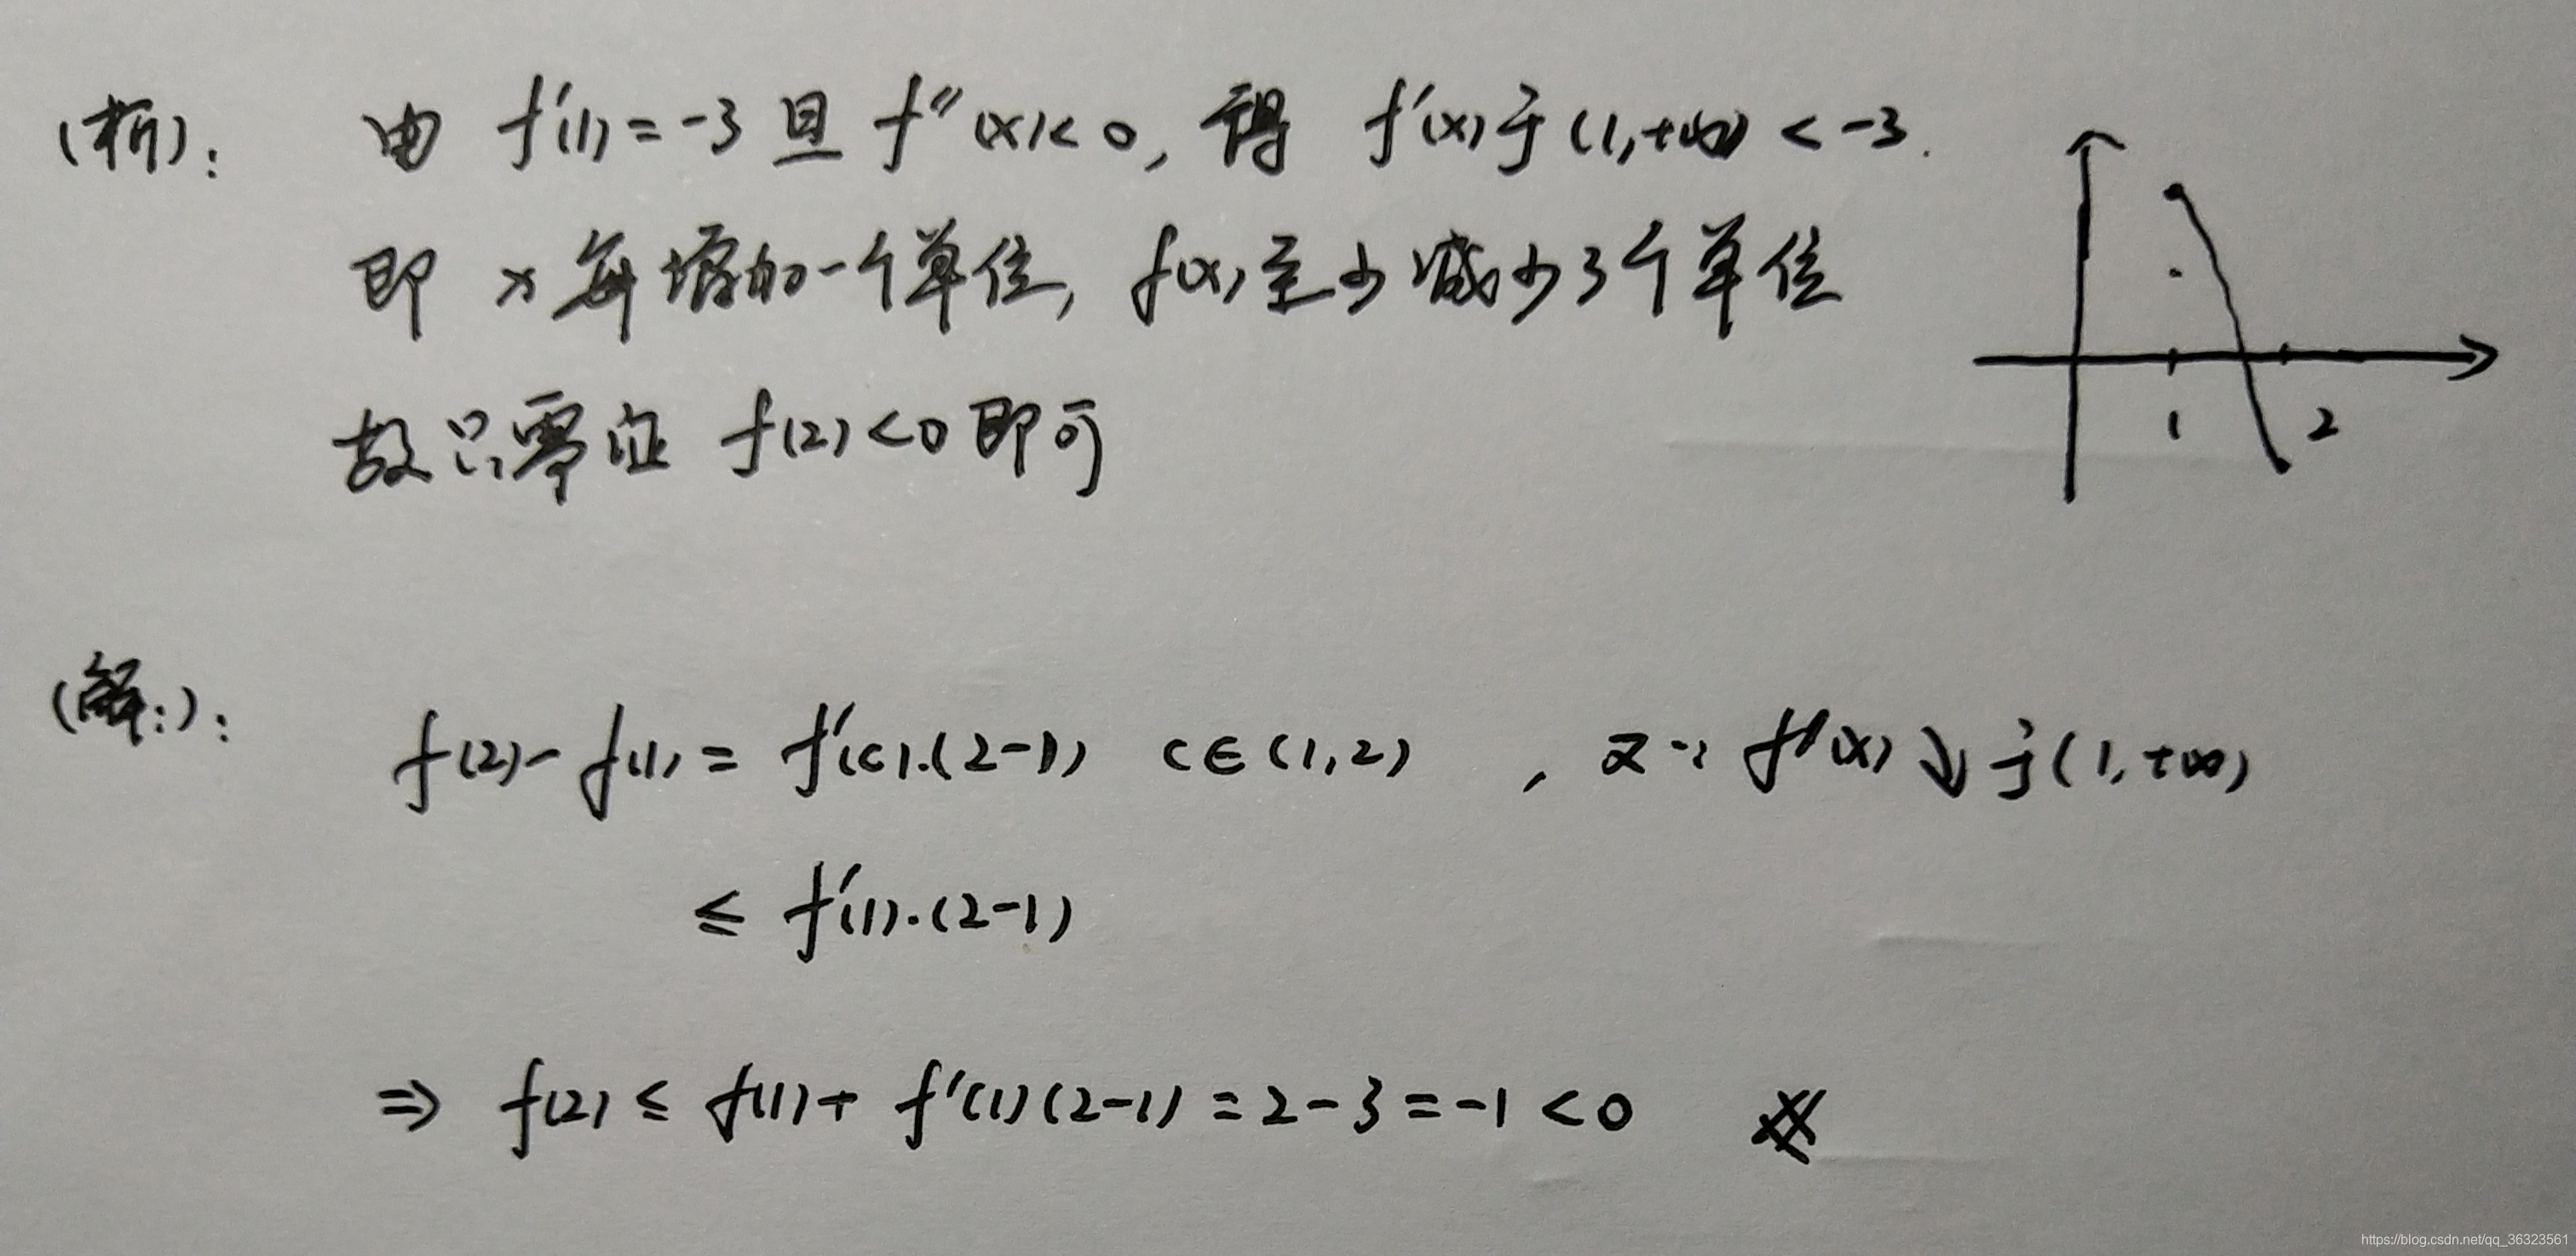 (析): 由 f'(1)=-3 且 f''(x)<0, 得 f'(x)于(1,+∞) <-3.
即 x每增加一个单位, f(x)至少减少3个单位
故只需证 f(2)<0即可
1 2
(解:): f(2)-f(1)= f'(c).(2-1) c∈(1,2) , 又∵ f'(x)↘于(1,+∞)
≤ f'(1).(2-1)
⇒ f(2)≤ f(1)+ f'(1)(2-1)=2-3=-1<0 #
https://blog.csdn.net/qq_36323561